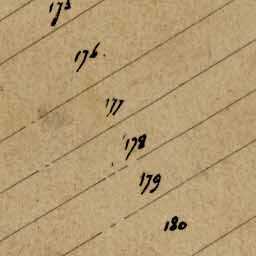 175
176.
177
178
179
180